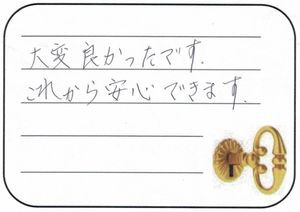 大変良かったです.
これから安心できます.